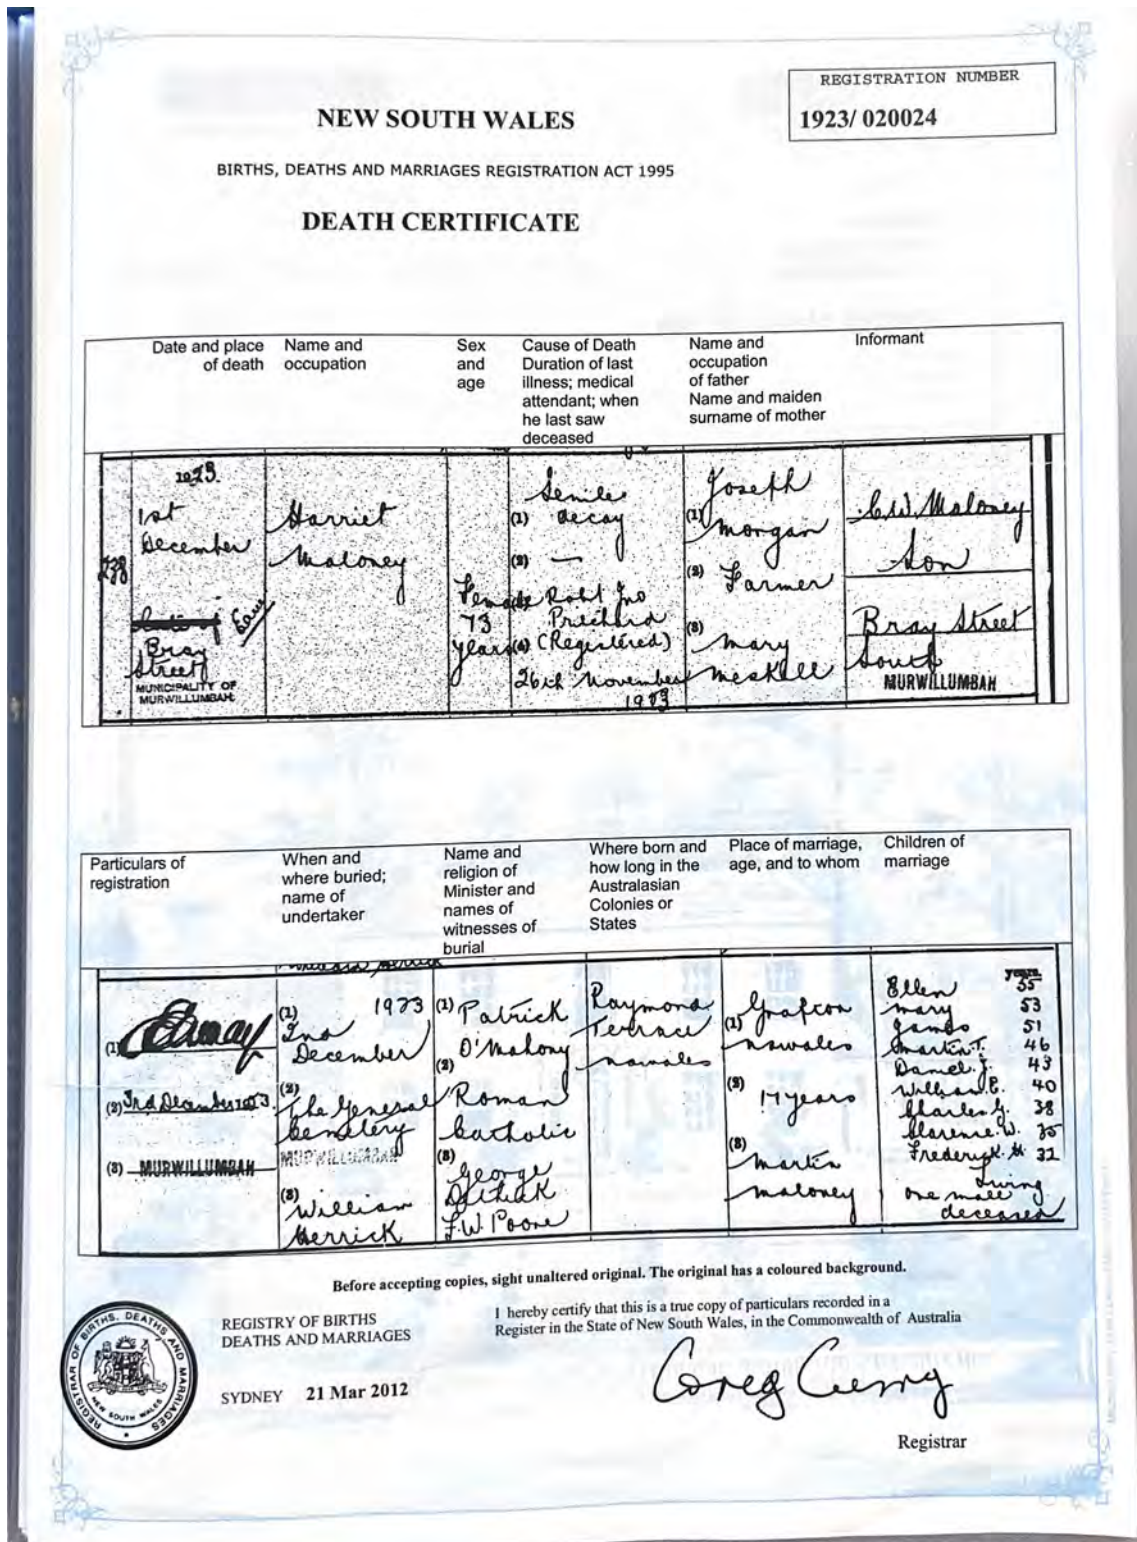 REGISTRATION NUMBER
1923/ 020024
NEW SOUTH WALES
BIRTHS, DEATHS AND MARRIAGES REGISTRATION ACT 1995
DEATH CERTIFICATE
Date and place
of death
Name and
occupation
Sex
and
age
Cause of Death
Duration of last
illness; medical
attendant; when
he last saw
deceased
Name and
occupation
of father
Name and maiden
surname of mother
Informant
238
1923.
1st
December
Bray
Street
MUNICIPALITY OF
MURWILLUMBAH
Harriet
Maloney
Female
73
years
Senile
(1) decay
(2) —
Robt Jno
Prichard
(4) (Registered)
26th November
1923
Joseph
(1) Morgan
(2) Farmer
(3) Mary
Meskell
C.W. Maloney
Son
Bray Street
South
MURWILLUMBAH
Particulars of
registration
When and
where buried;
name of
undertaker
Name and
religion of
Minister and
names of
witnesses of
burial
Where born and
how long in the
Australasian
Colonies or
States
Place of marriage,
age, and to whom
Children of
marriage
(1)
(2) 3rd December 1923
(3) MURWILLUMBAH
(1) 1923
2nd
December
(2)
The General
Cemetery
MURWILLUMBAH
(3)
William
Herrick
(1) Patrick
O'Mahony
(2)
Roman
Catholic
(3)
George
F.W. Poore
Raymond
Terrace
N.S. Wales
Grafton
(1)
N.S. Wales
(2)
17 years
(3)
Martin
Maloney
years
Ellen 55
Mary 53
James 51
Martin T. 46
Daniel J. 43
William E. 40
Charles G. 38
Clarence W. 35
Frederick H 32
Living
one male
deceased
Before accepting copies, sight unaltered original. The original has a coloured background.
REGISTRY OF BIRTHS
DEATHS AND MARRIAGES
SYDNEY 21 Mar 2012
I hereby certify that this is a true copy of particulars recorded in a
Register in the State of New South Wales, in the Commonwealth of Australia
Greg Curry
Registrar
REGISTRAR OF BIRTHS, DEATHS AND MARRIAGES
NEW SOUTH WALES